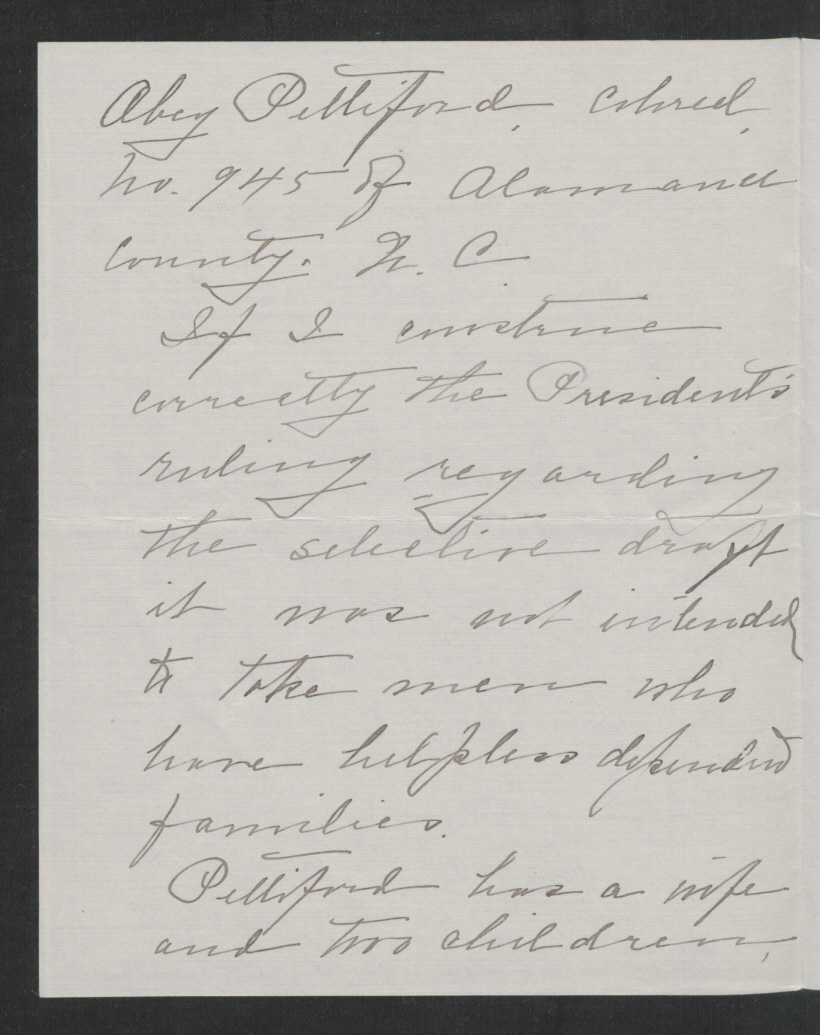 Abey Pettiford, colored,
No. 945 of Alamance
County. N. C
If I construe
correctly the President's
ruling regarding
the selective draft
it was not intended
to take men who
have helpless dependent
families.
Pettiford has a wife
and two children,